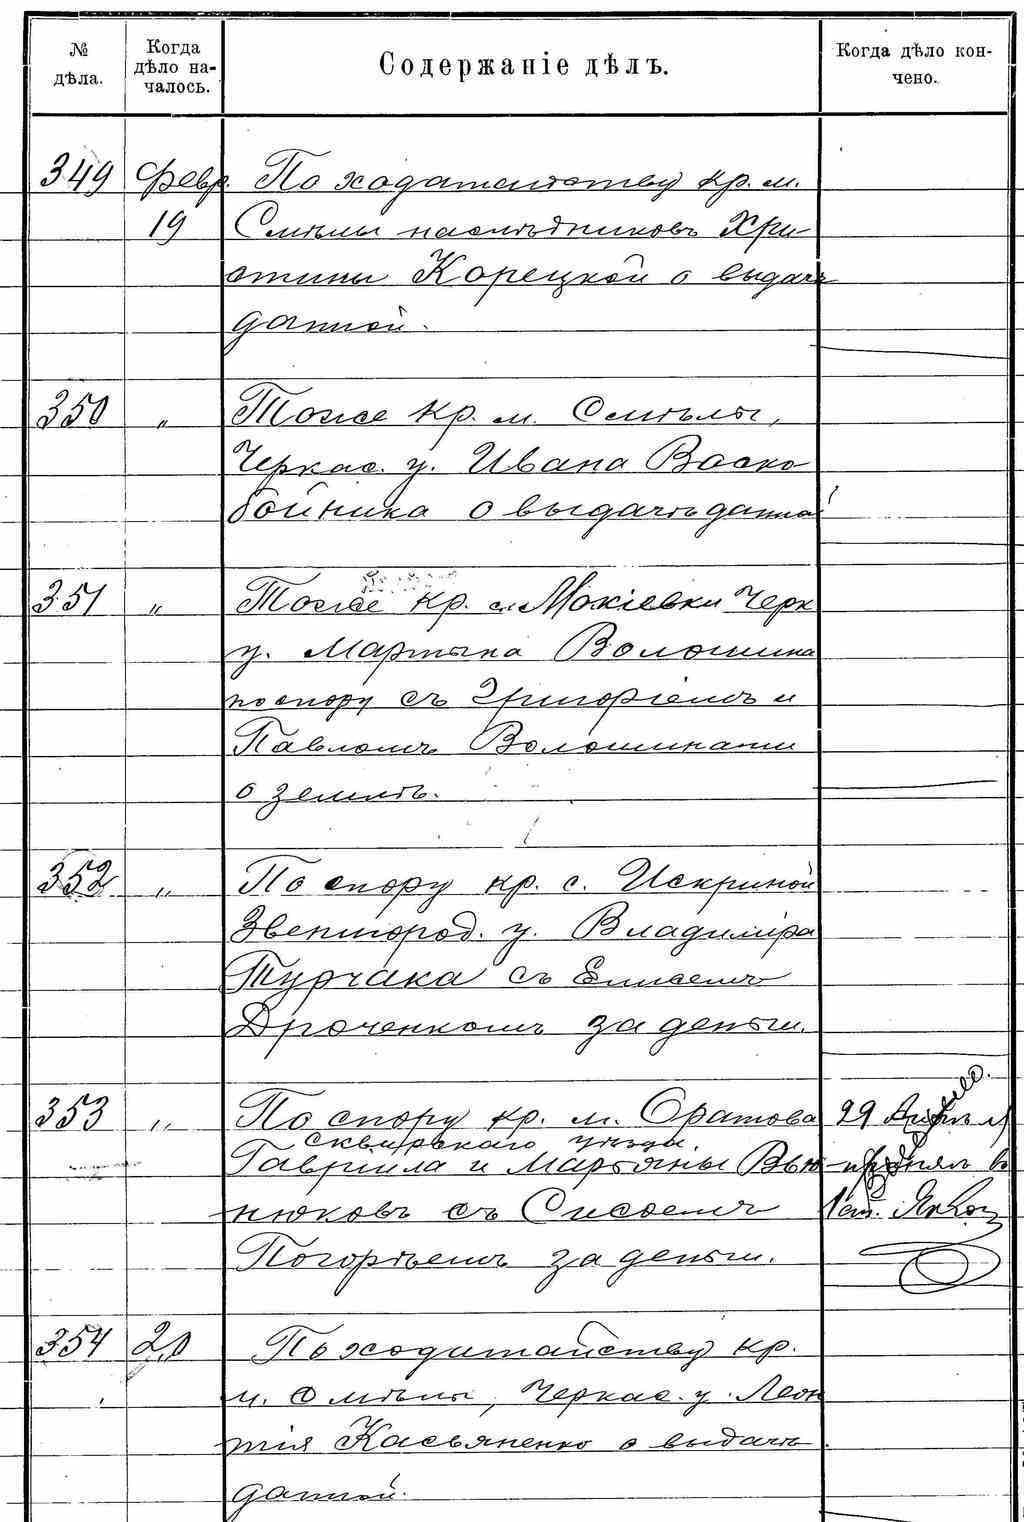 № дѣла.
Когда дѣло на-
чалось.
Содержаніе дѣлъ.
Когда дѣло кон-
чено.
349 Февр. По ходатайству кр. м.
19 Смѣлы наслѣдниковъ Хри-
стины Корецкой о выдачѣ
данной.
350 „ Тоже кр. м. Смѣлы,
Черкас. у. Ивана Воско
бойника о выдачѣ данной
351 „ Тоже кр. с. Мокіевки Черк
у. Мартына Волошина
по спору съ Григоріемъ и
Павломъ Волошинами
о землѣ.
352 „ По спору кр. с. Искриной
Звенигород. у. Владиміра
Турчака съ Елисеемъ
Дроченкомъ за деньги.
353 „ По спору кр. м. Оратова 29 Апрѣля
Сквирскаго уѣзда.
Гавріила и Мартяны Вью принялъ въ
нюковъ съ Сисоемъ 1 ст.
Погорѣемъ за деньги.
354 20 По ходатайству кр.
м. Смѣлы, Черкас. у. Леон
тія Касьяненко о выдачѣ
данной.